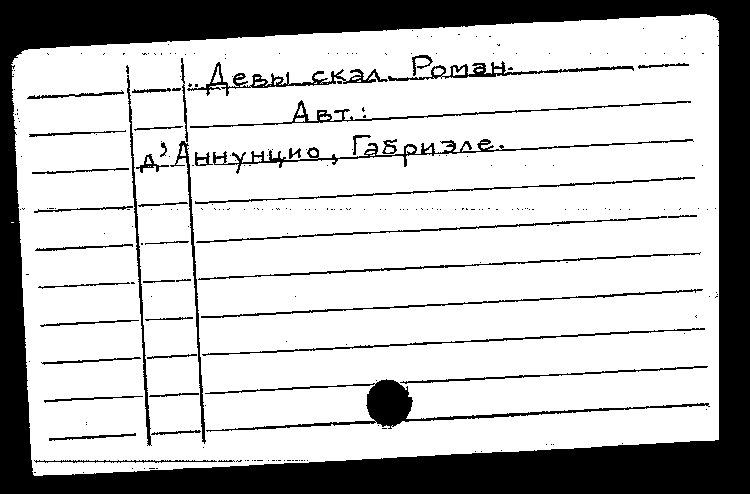 .. Девы скал. Роман.
Авт.:
д'Аннунцио, Габриэле.